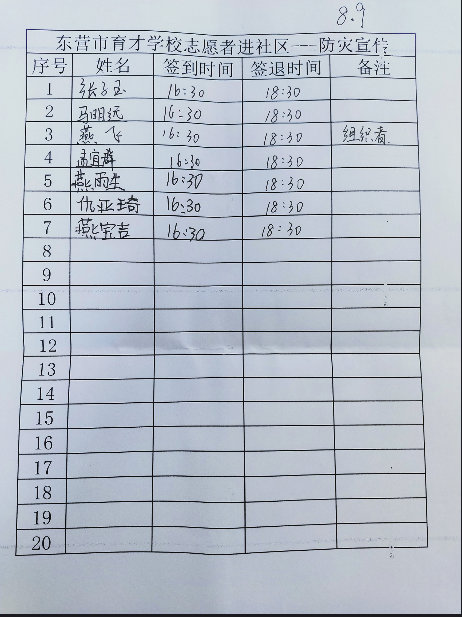 8.9
东营市育才学校志愿者进社区---防灾宣传
序号 姓名 签到时间 签退时间 备注
1 张子玉 16:30 18:30
2 马明远 16:30 18:30
3 燕飞 16:30 18:30 组织者
4 孟宜群 16:30 18:30
5 燕雨生 16:30 18:30
6 仇亚琦 16:30 18:30
7 燕宝吉 16:30 18:30
8
9
10
11
12
13
14
15
16
17
18
19
20